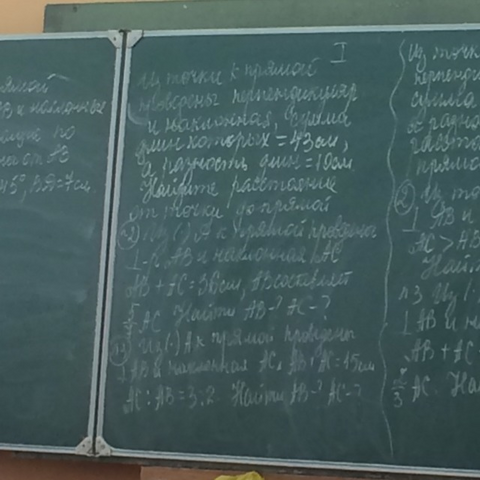 рямой
АВ и наклонные
ющие по
45°, ВD=7см
I
Из точки к прямой
проведены перпендикуляр
и наклонная, сумма
длин которых = 43 см,
а разность длин = 19см
Найдите расстояние
от точки до прямой
№2 Из (·) А к прямой проведены
⊥ АВ и наклонная АС
АВ + АС = 36см, АВ составляет
АС. Найти АВ-? АС-?
Из (·) А к прямой проведены
⊥ АВ и наклонная АС, АВ+АС=15см
АС:АВ=3:2. Найти АВ-? АС-?
Из точк
перпенд
сумма
а разно
расстоя
прямо
② Из то
⊥ АВ и
АС > АВ
Найт
№3 Из (·
⊥ АВ и на
АВ + АС
АС. На